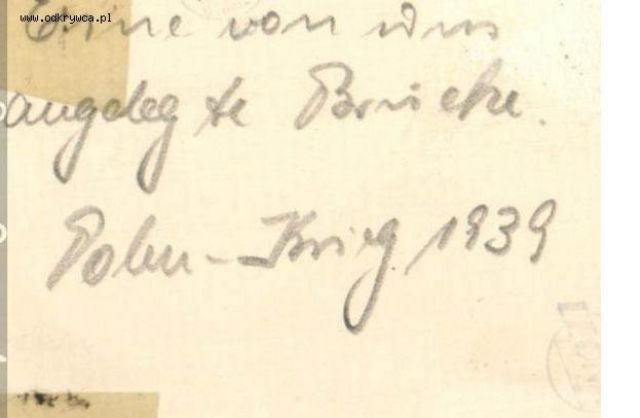 www.odkrywca.pl
Eine von uns
angelegte Brücke.
Polen-Krieg 1939